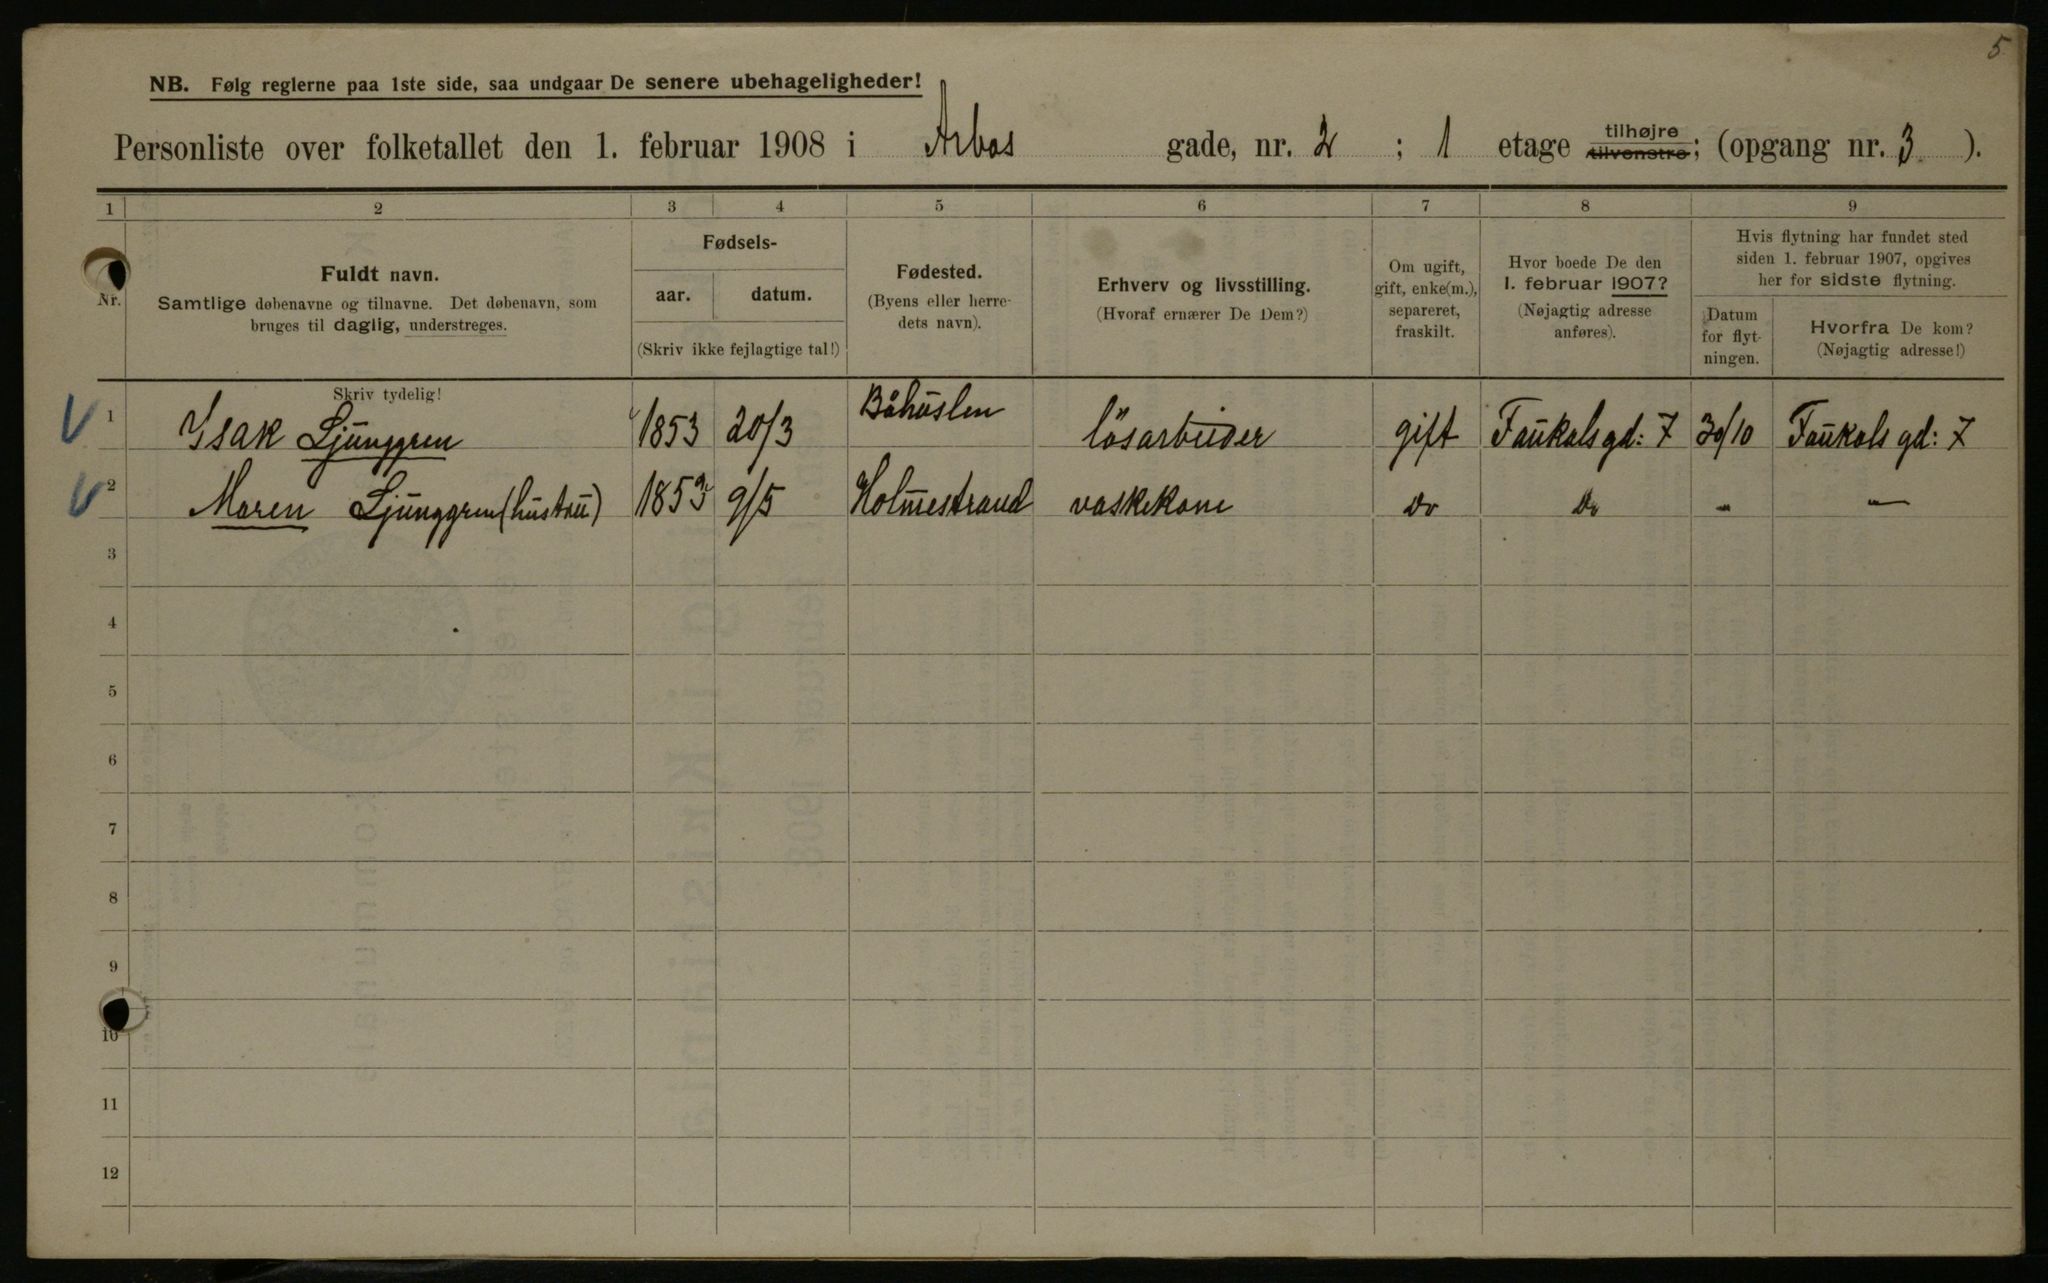 5
NB. Følg reglerne paa 1ste side, saa undgaar De senere ubehageligheder!
Personliste over folketallet den 1. februar 1908 i Arbos gade, nr. 2 ; 1 etage tilhøjre tilvenstre; (opgang nr. 3 ).
1 2 3 4 5 6 7 8 9
Nr.
Fuldt navn.
Samtlige døbenavne og tilnavne. Det døbenavn, som
bruges til daglig, understreges.
Skriv tydelig!
Fødsels-
aar. datum.
(Skriv ikke fejlagtige tal!)
Fødested.
(Byens eller herre-
dets navn).
Erhverv og livsstilling.
(Hvoraf ernærer De Dem?)
Om ugift,
gift, enke(m.),
separeret,
fraskilt.
Hvor boede De den
1. februar 1907?
(Nøjagtig adresse
anføres).
Hvis flytning har fundet sted
siden 1. februar 1907, opgives
her for sidste flytning.
Datum
for flyt-
ningen.
Hvorfra De kom?
(Nøjagtig adresse!)
1 Isak Ljunggren 1853 20/3 Båhuslen lösarbeider gift Faukalsgd: 7 30/10 Faukals gd: 7
2 Maren Ljunggren (hustru) 1853 9/5 Holmestrand vaskekone do do - -
3
4
5
6
7
8
9
10
11
12